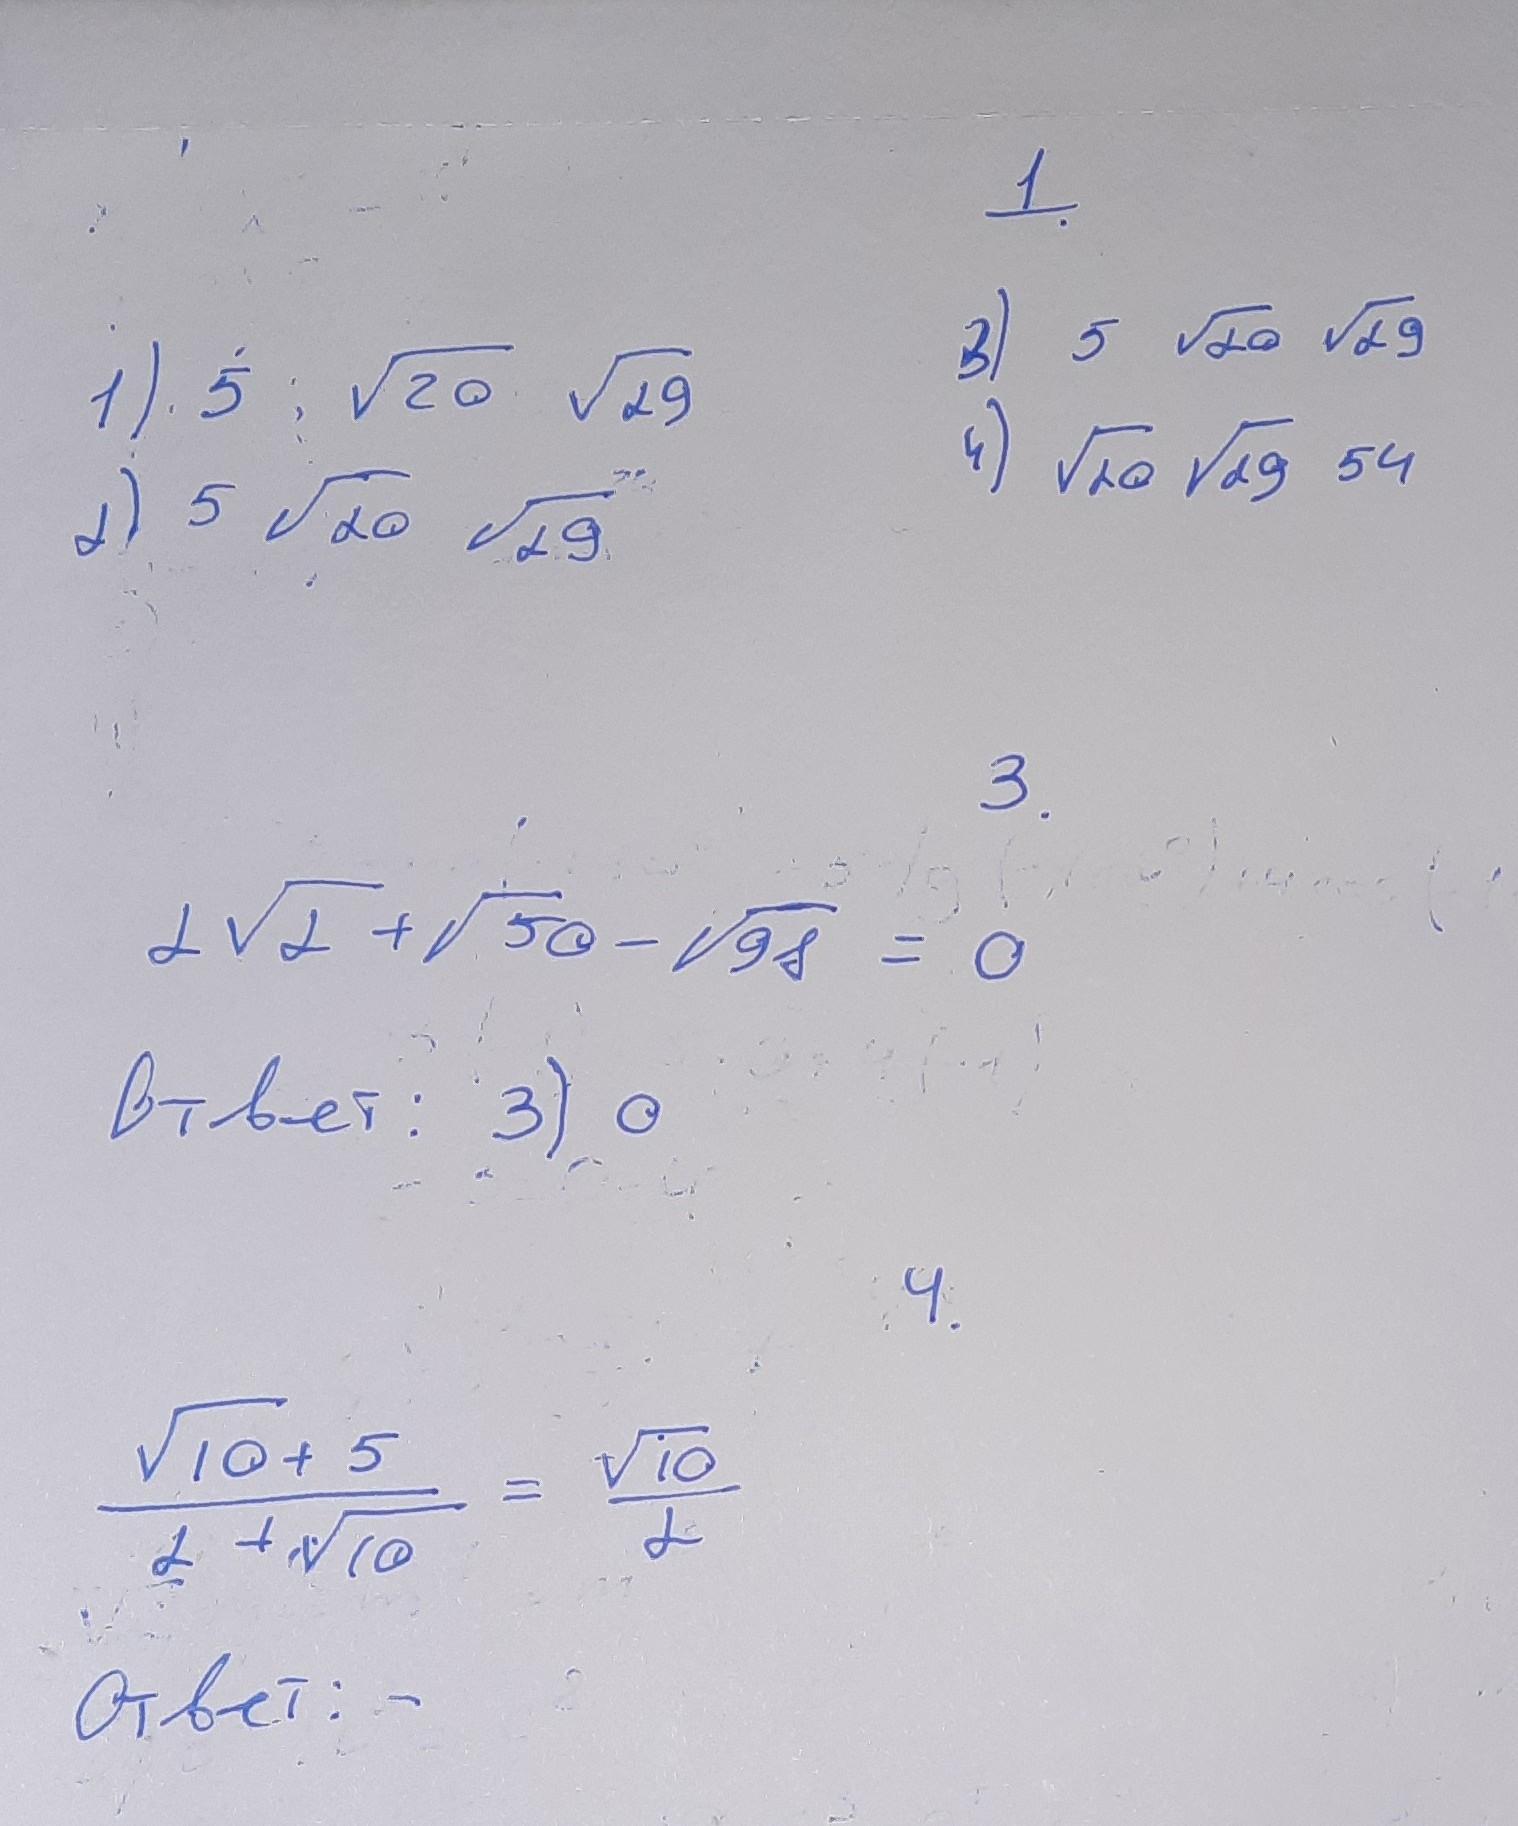 1.
1) 5; √20 √29
2) 5 √20 √29
3) 5 √20 √29
4) √20 √29 54
3.
2√2 + √50 - √98 = 0
Ответ: 3) 0
4.
√10 + 5 / 2 + √10 = √10 / 2
Ответ: -